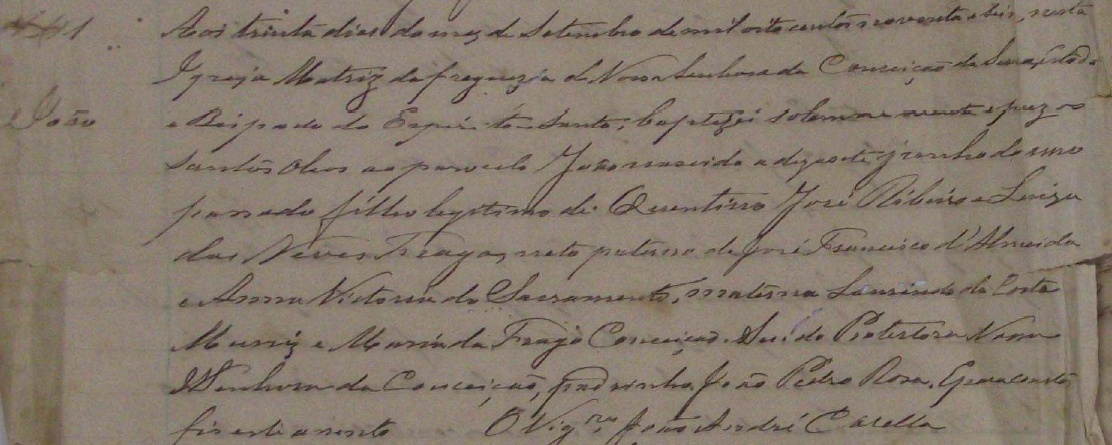 Aos trinta dias do mez de Setembro de mil oito centos noventa e seis, nesta
Igreja Matriz da freguezia de Nossa Senhora da Conceição da Serra, Estado
João
e Bispado do Espirito Santo, baptizei solemne mente e puz os
santos oleos ao parvulo João nascido a dezasete junho do anno
passado filho legitimo de Quentirro José Ribeiro e Luiza
das Neves Fraga, neto paterno de José Francisco d'Almeida
e Anna Victoria do Sacramento, materna Laurindo da Costa
Muniz e Maria da Fraga Conceição. Protectora Nossa
Senhora da Conceição, padrinho João Pedro Rosa. E para constar
fiz este assento O Vigro. João André Casella